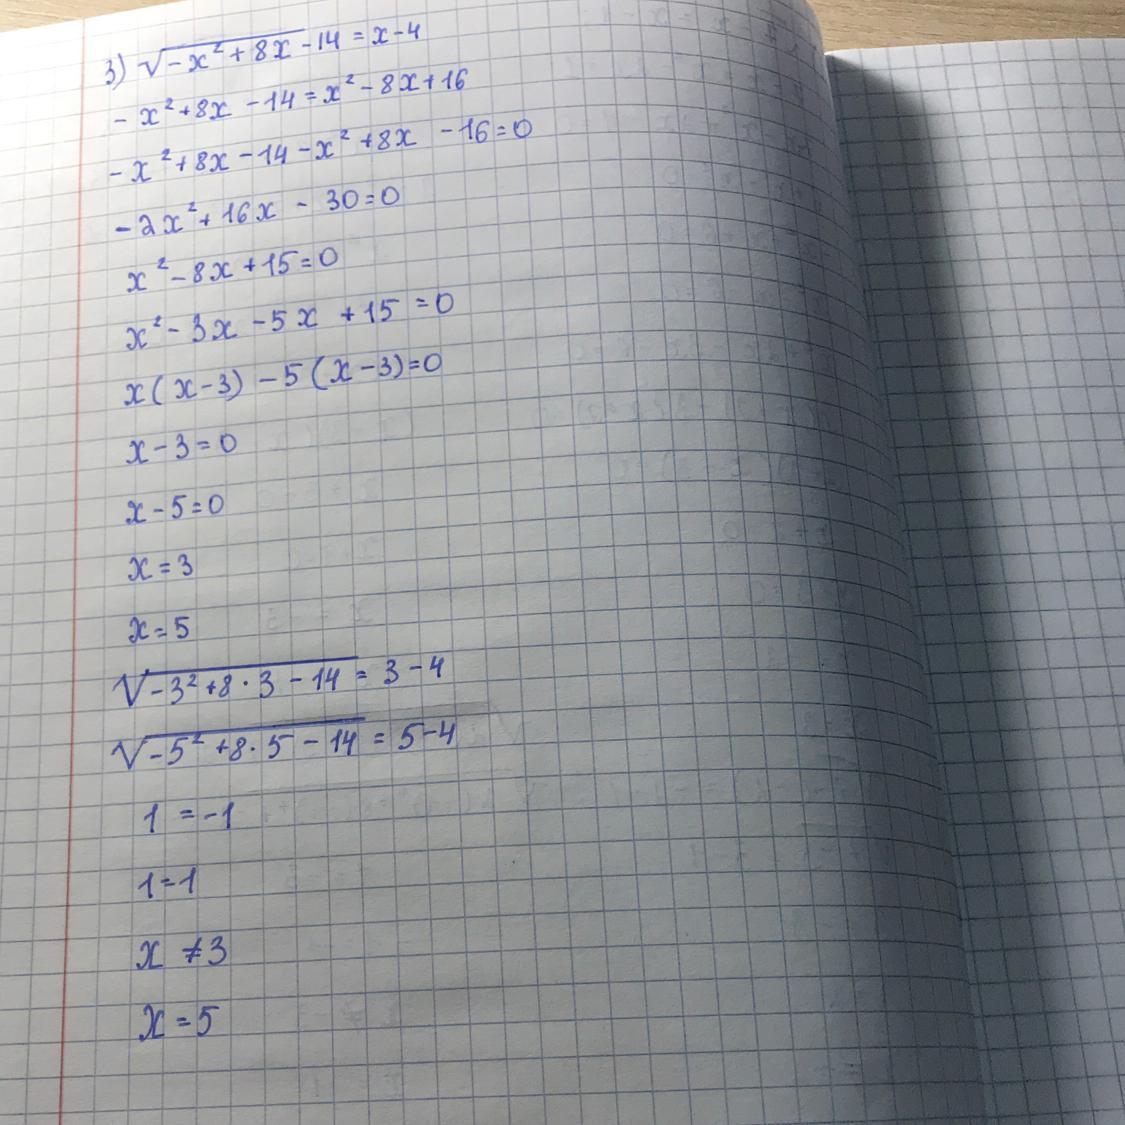 3) √(-x² + 8x - 14) = x - 4
- x² + 8x - 14 = x² - 8x + 16
- x² + 8x - 14 - x² + 8x - 16 = 0
- 2x² + 16x - 30 = 0
x² - 8x + 15 = 0
x² - 3x - 5x + 15 = 0
x(x - 3) - 5(x - 3) = 0
x - 3 = 0
x - 5 = 0
x = 3
x = 5
√(-3² + 8 · 3 - 14) = 3 - 4
√(-5² + 8 · 5 - 14) = 5 - 4
1 = -1
1 = 1
x ≠ 3
x = 5